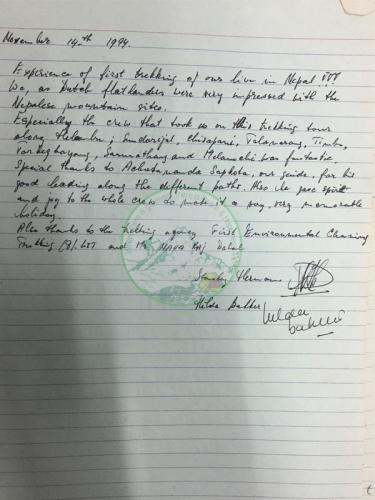 November 14th 1994.
Experience of first trekking of our live in Nepal !!!
We, as Dutch flatlanders were very impressed with the
Nepalese mountain sites.
Especially the crew that took us on this trekking tour
along Helambu; Sundarijel, Chisapani, Talamarang, Timbu,
Tarkeghayang, Sermathang and Melamchi was funtastic.
Special thanks to Achutananda Sapkota, our guide, for his
good leading along the different paths. Also he gave spirit
and joy to the whole crew to make it a very, very memorable
holiday.
Also thanks to the trekking agency First Environmental
Trekking (P). LTD and Mr Nava Raj Dahal
Stanley Hermans
Hilda Bakker